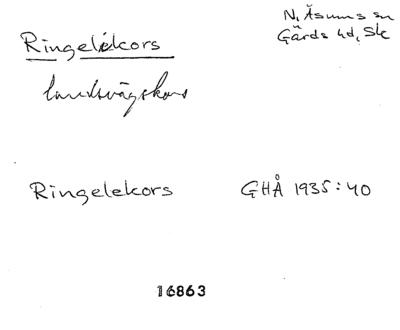 Ringelekors
N. Åsums sn
Gärds hd, Sk
landsvägskors
Ringelekors
GHÅ 1935:40
16863